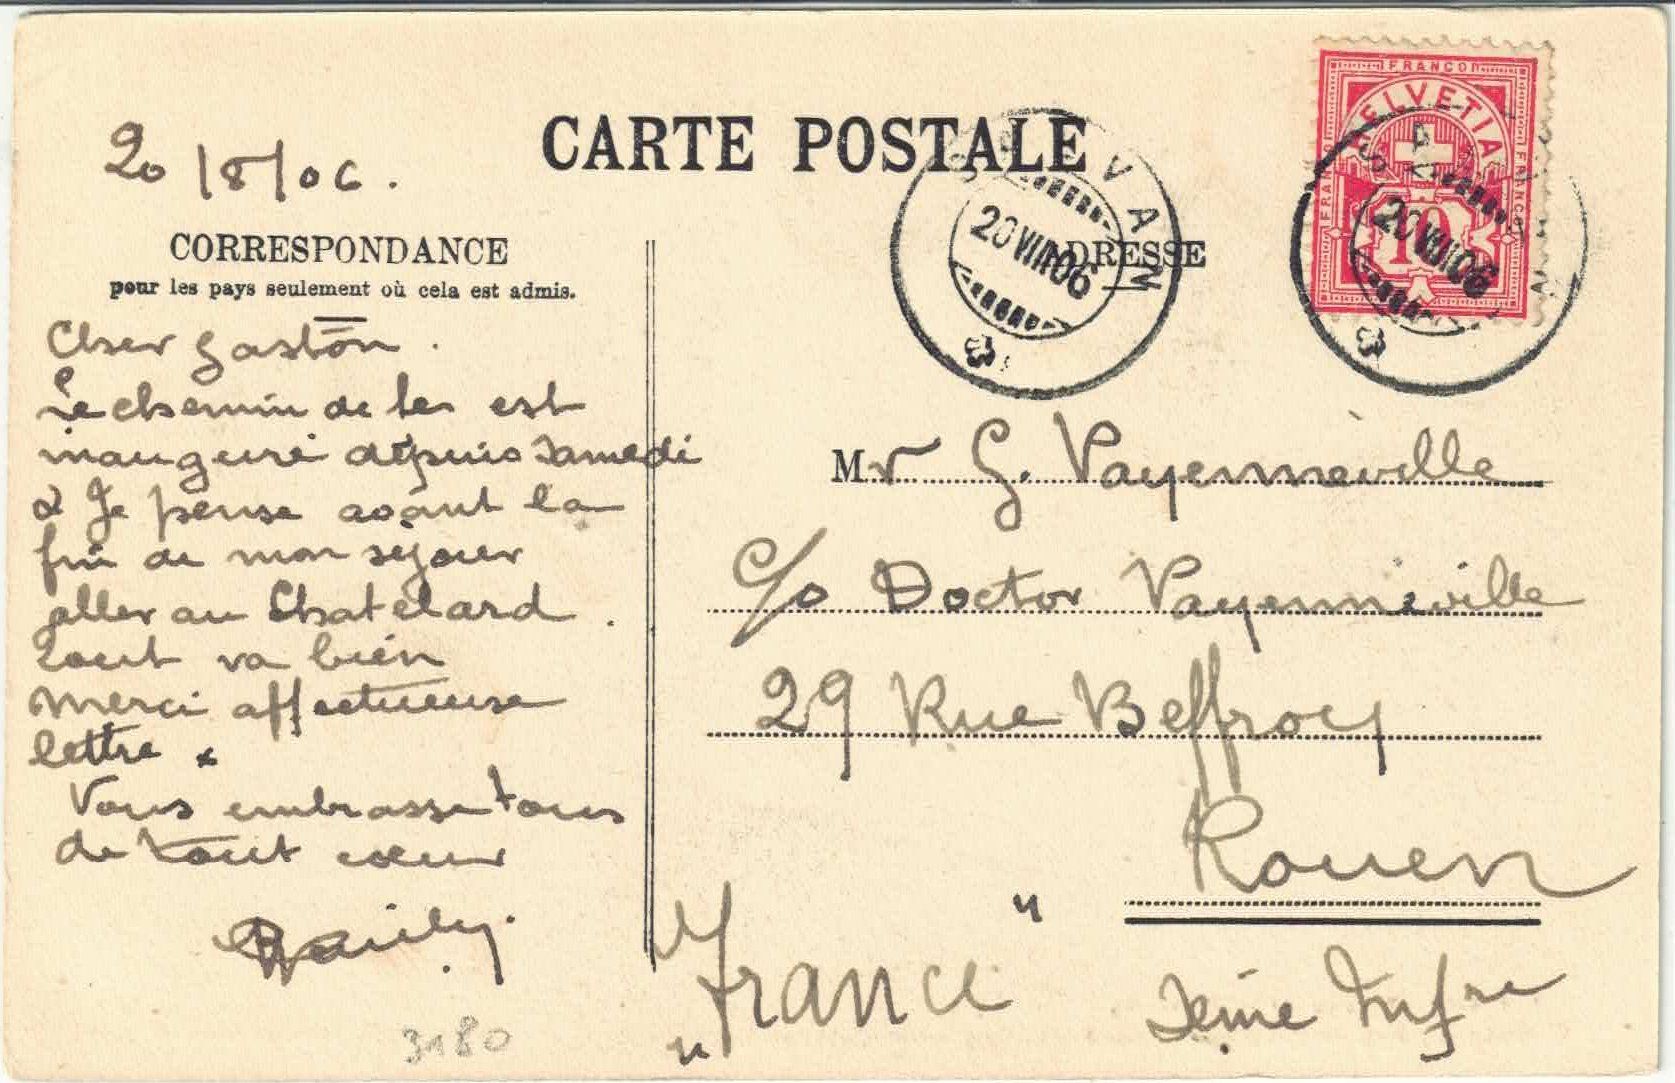 CARTE POSTALE
20/8/06.
CORRESPONDANCE
pour les pays seulement où cela est admis.
ADRESSE
FRANCO
HELVETIA
FRANCO
FRANCO
10
SALVAN
20 VIII 06
SALVAN
20 VIII 06
Cher Gaston.
Le chemin de fer est
inauguré depuis samedi
& Je pense avant la
fin de mon séjour
aller au Chatelard.
Tout va bien
Merci affectueuse
lettre
Vous embrasse tous
de tout cœur
Mr G. Vayenneville
c/o Doctor Vayenneville
29 Rue Beffroy
Rouen
"France"
Seine Infre
3180